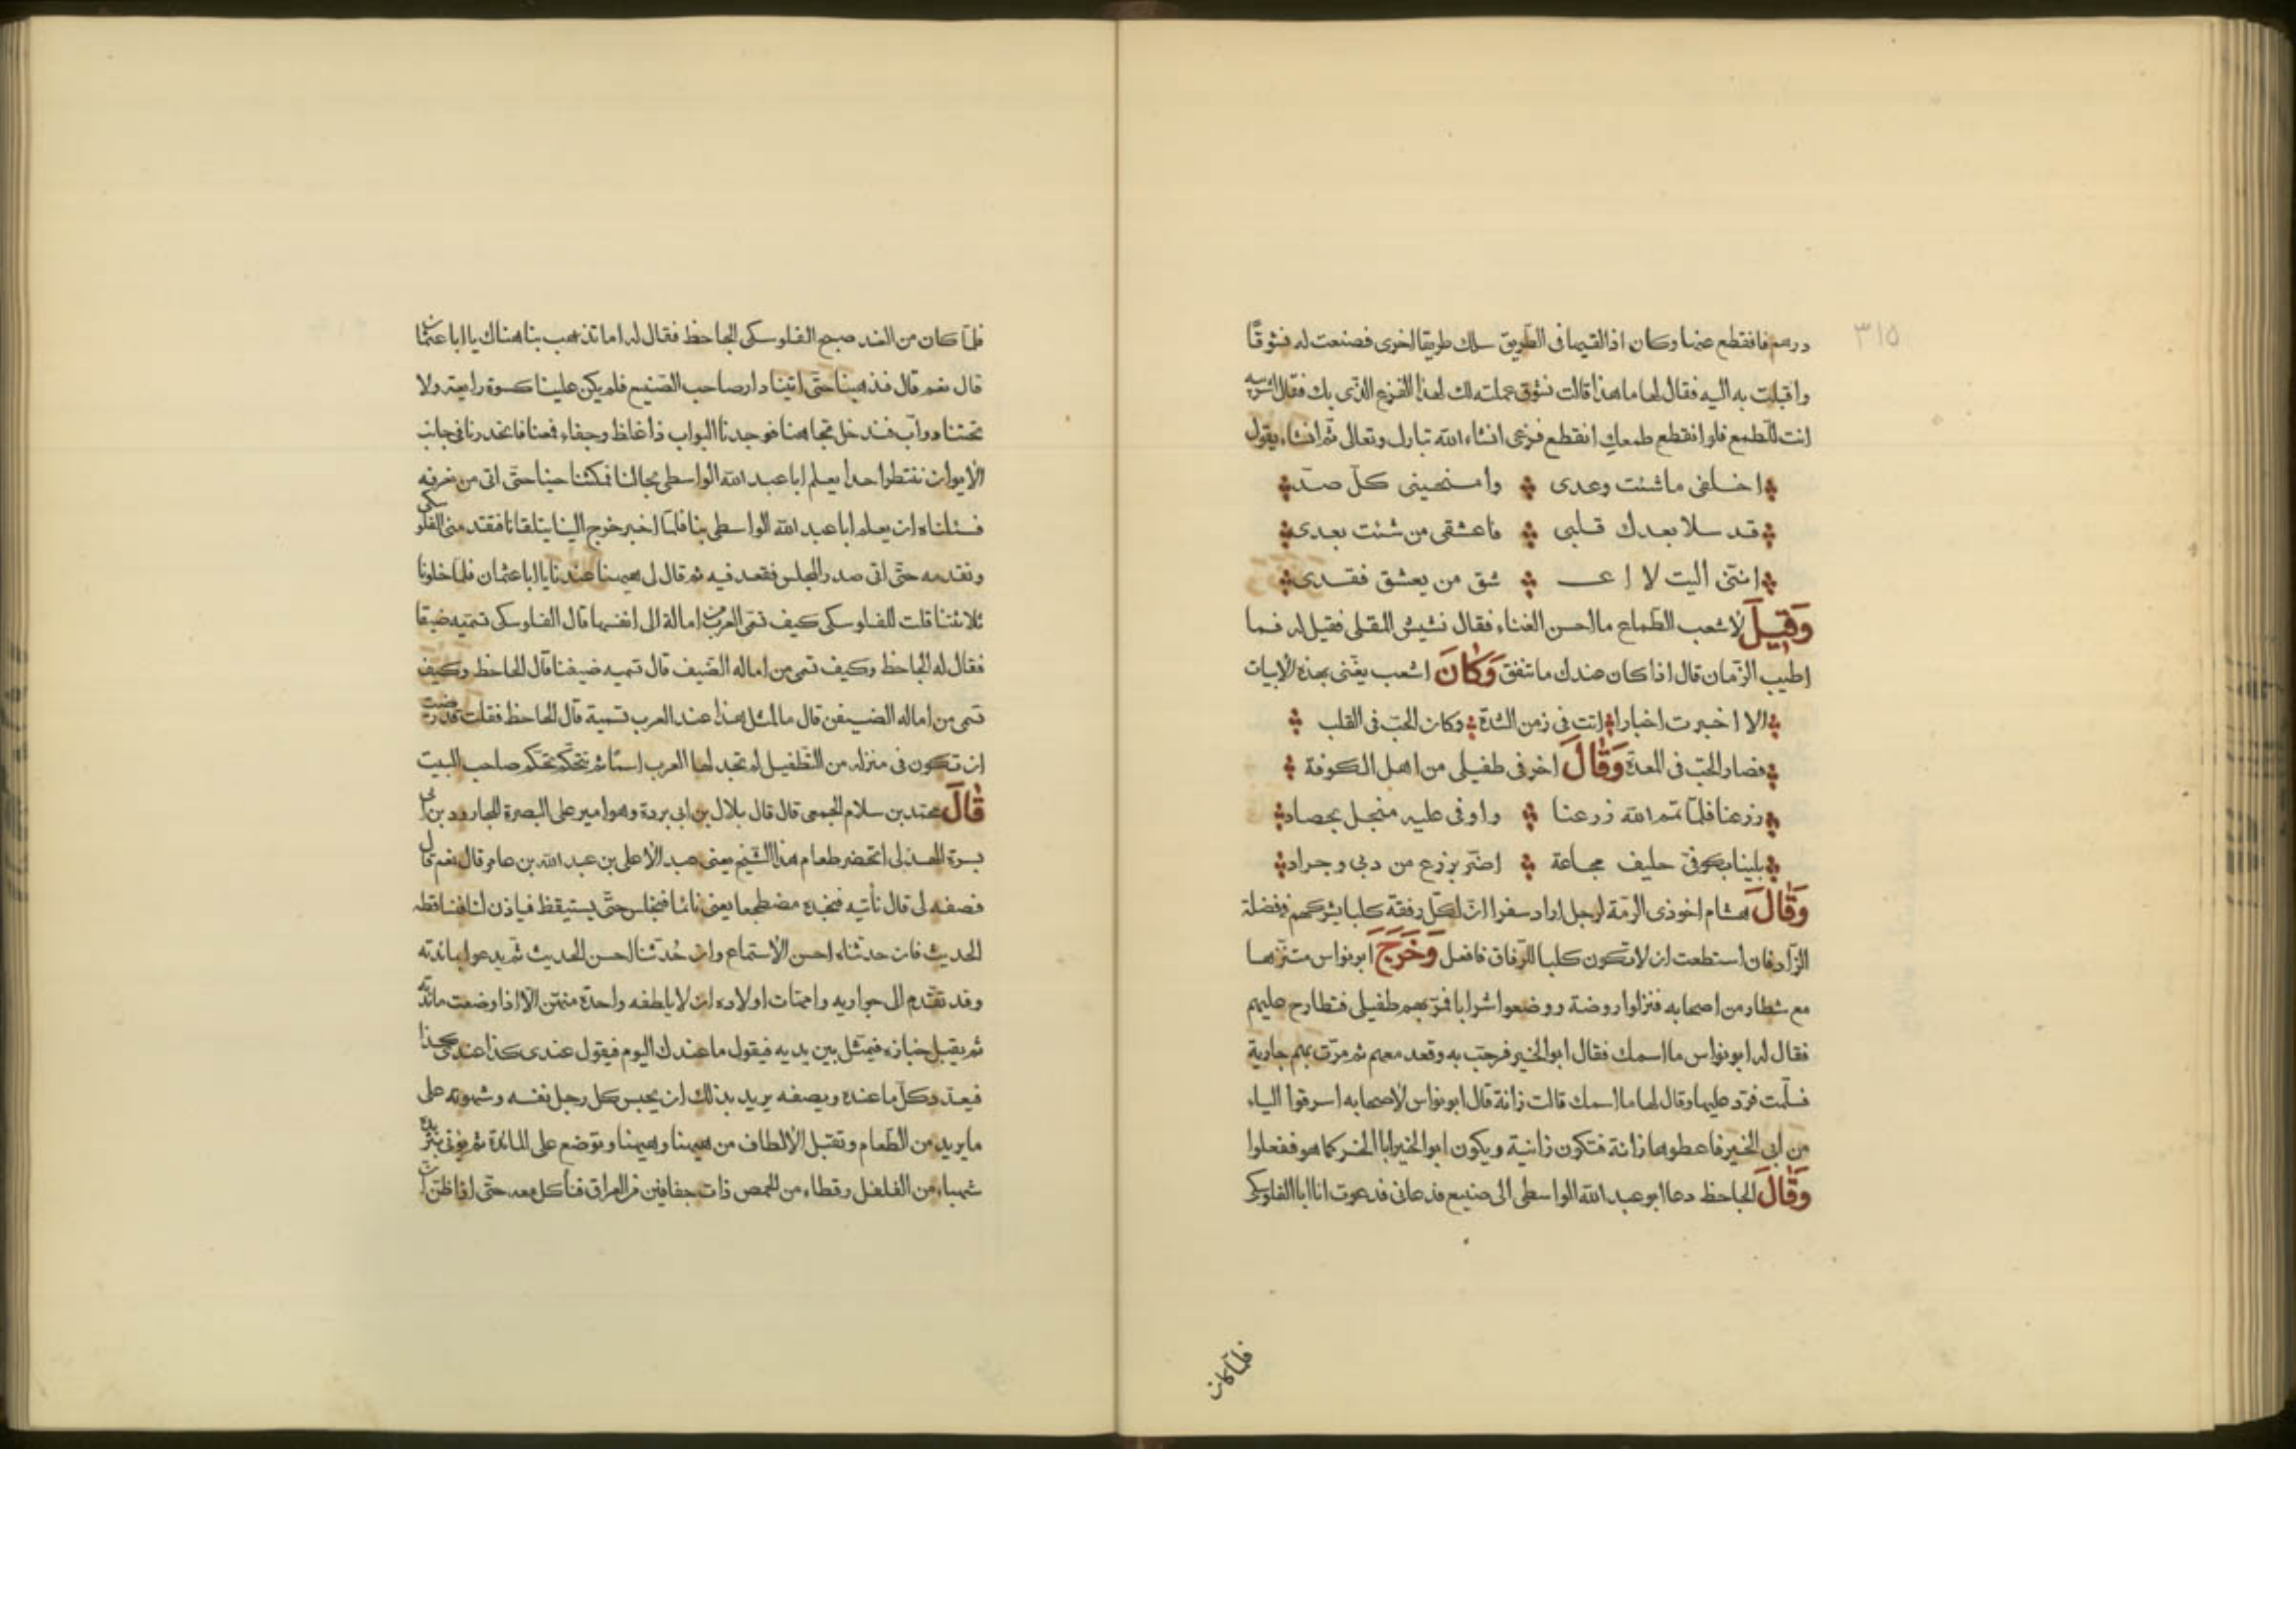 ٣١٥
درهم فانقطع عنها وكان اذا لقيها فى الطريق سلك طريقا اخرى فصنعت له نشوقا
واقبلت به اليه فقال لها ما هذا قالت نشوق عملته لك لهذا الفزع الذى بك فقال اشربيه
انت للطمع فلو انقطع طمعك انقطع فزعى انشاء الله تبارك وتعالى ثم انشاء يقول
اخلفى ما شئت وعدى وامنحينى كل صد
قد سلا بعدك قلبى فاعشقى من شئت بعدى
اننى اليت لا اعـ ـشق من يعشق نقدى
وَقِيلَ لاشعب الطماع ما احسن الغناء فقال نشيش المقلى فقيل له فما
اطيب الزمان قال اذا كان عندك ما تنفق وَكَانَ اشعب يغنى بهذه الأبيات
الا اخبرت اخبارا اتت فى زمن الشدة وكان الحب فى القلب
فصار الحب فى المعدة وَقَالَ اخر فى طفيلى من اهل الكوفة
زرعنا فلما تمم الله زرعنا واوفى عليه منجل بحصاد
بلينا بكوفى حليف مجاعة اضر بزرع من دبى وجراد
وَقَالَ هشام اخو ذى الرمة لرجل اراد سفرا ان لكل رفقة كلبا يشركهم فى فضلة
الزاد فان استطعت ان لا تكون كلبا للرفاق فافعل وَخَرَجَ ابو نواس متنزها
مع شطار من اصحابه فنزلوا روضة ووضعوا شرابا فمر بهم طفيلى فتطارح عليهم
فقال له ابو نواس ما اسمك فقال ابو الخير فرحب به وقعد معهم ثم مرت بهم جارية
فسلمت فرد عليها وقال لها ما اسمك قالت زانة قال ابو نواس لأصحابه اسرقوا الياء
من ابى الخير فاعطوها زانة فتكون زانية ويكون ابو الخير ابا الخر كما هو ففعلوا
وَقَالَ الجاحظ دعا ابو عبد الله الواسطى الى صنيع فدعانى فدعوت انا ابا الفلوسكى
فلما كان
فلما كان من الغد صبح الفلوسكى الجاحظ فقال له اما تذهب بنا هناك يا ابا عثمان
قال نعم قال فذهبنا حتى اتينا دار صاحب الصنيع فلم يكن علينا كسوة رايعة ولا
تحتنا دواب فندخل تجاهنا فوجدنا البواب ذا غلظ وجفاء فمنعنا فانحدرنا فى جانب
الأيوان ننتظر احدا يعلم ابا عبد الله الواسطى بحالنا فمكثنا حينا حتى اتى من نعرفه
فسئلناه ان يعلم ابا عبد الله الواسطى بنا فلما اخبر خرج الينا يتلقانا فتقدمنى الفلوسكى
وتقدمه حتى اتى صدر المجلس فقعد فيه ثم قال لى ههنا عندنا يا ابا عثمان فلما خلونا
ثلاثتنا قلت للفلوسكى كيف تسمى العرب من امالة الى انفسها قال الفلوسكى تسميه ضيفا
فقال له الجاحظ وكيف تسمى من اماله الضيف قال تسميه ضيفنا قال الجاحظ وكيف
تسمى من اماله الضيفن قال ما لمثل هذا عند العرب تسمية قال الجاحظ فقلت قد رضيت
ان تكون فى منزلة من التطفيل لم تجد لها العرب اسما ثم تتحكم تحكم صاحب البيت
قَالَ محمد بن سلام الجمحى قال قال بلال بن ابى بردة وهو امير على البصرة للجارود بن ابى
سبرة الهذلى اتحضر طعام هذا الشيخ يعنى عبد الأعلى بن عبد الله بن عامر قال نعم قال
فصفه لى قال نأتيه فنجده مضطجعا يعنى نائما فنجلس حتى يستيقظ فياذن لنا فنساقطه
الحديث فان حدثناه احسن الأستماع وان حدثنا احسن الحديث ثم يدعوا بمائدته
وقد تقدم الى جواريه وامهات اولاده ان لا يلطفه واحدة منهن الا اذا وضعت مائدته
ثم يقبل خبازه فيمثل بين يديه فيقول ما عندك اليوم فيقول عندى كذا عندى كذا
فيعدد كل ما عنده ويصفه يريد بذلك ان يحبس كل رجل نفسه وشهوته على
ما يريد من الطعام وتقبل الألطاف من ههنا وههنا وتوضع على المائدة ثم يؤتى بثريدة
شهباء من الفلفل رقطاء من الحمص ذات حفافين من العراق فنأكل معه حتى اذا ظن ان